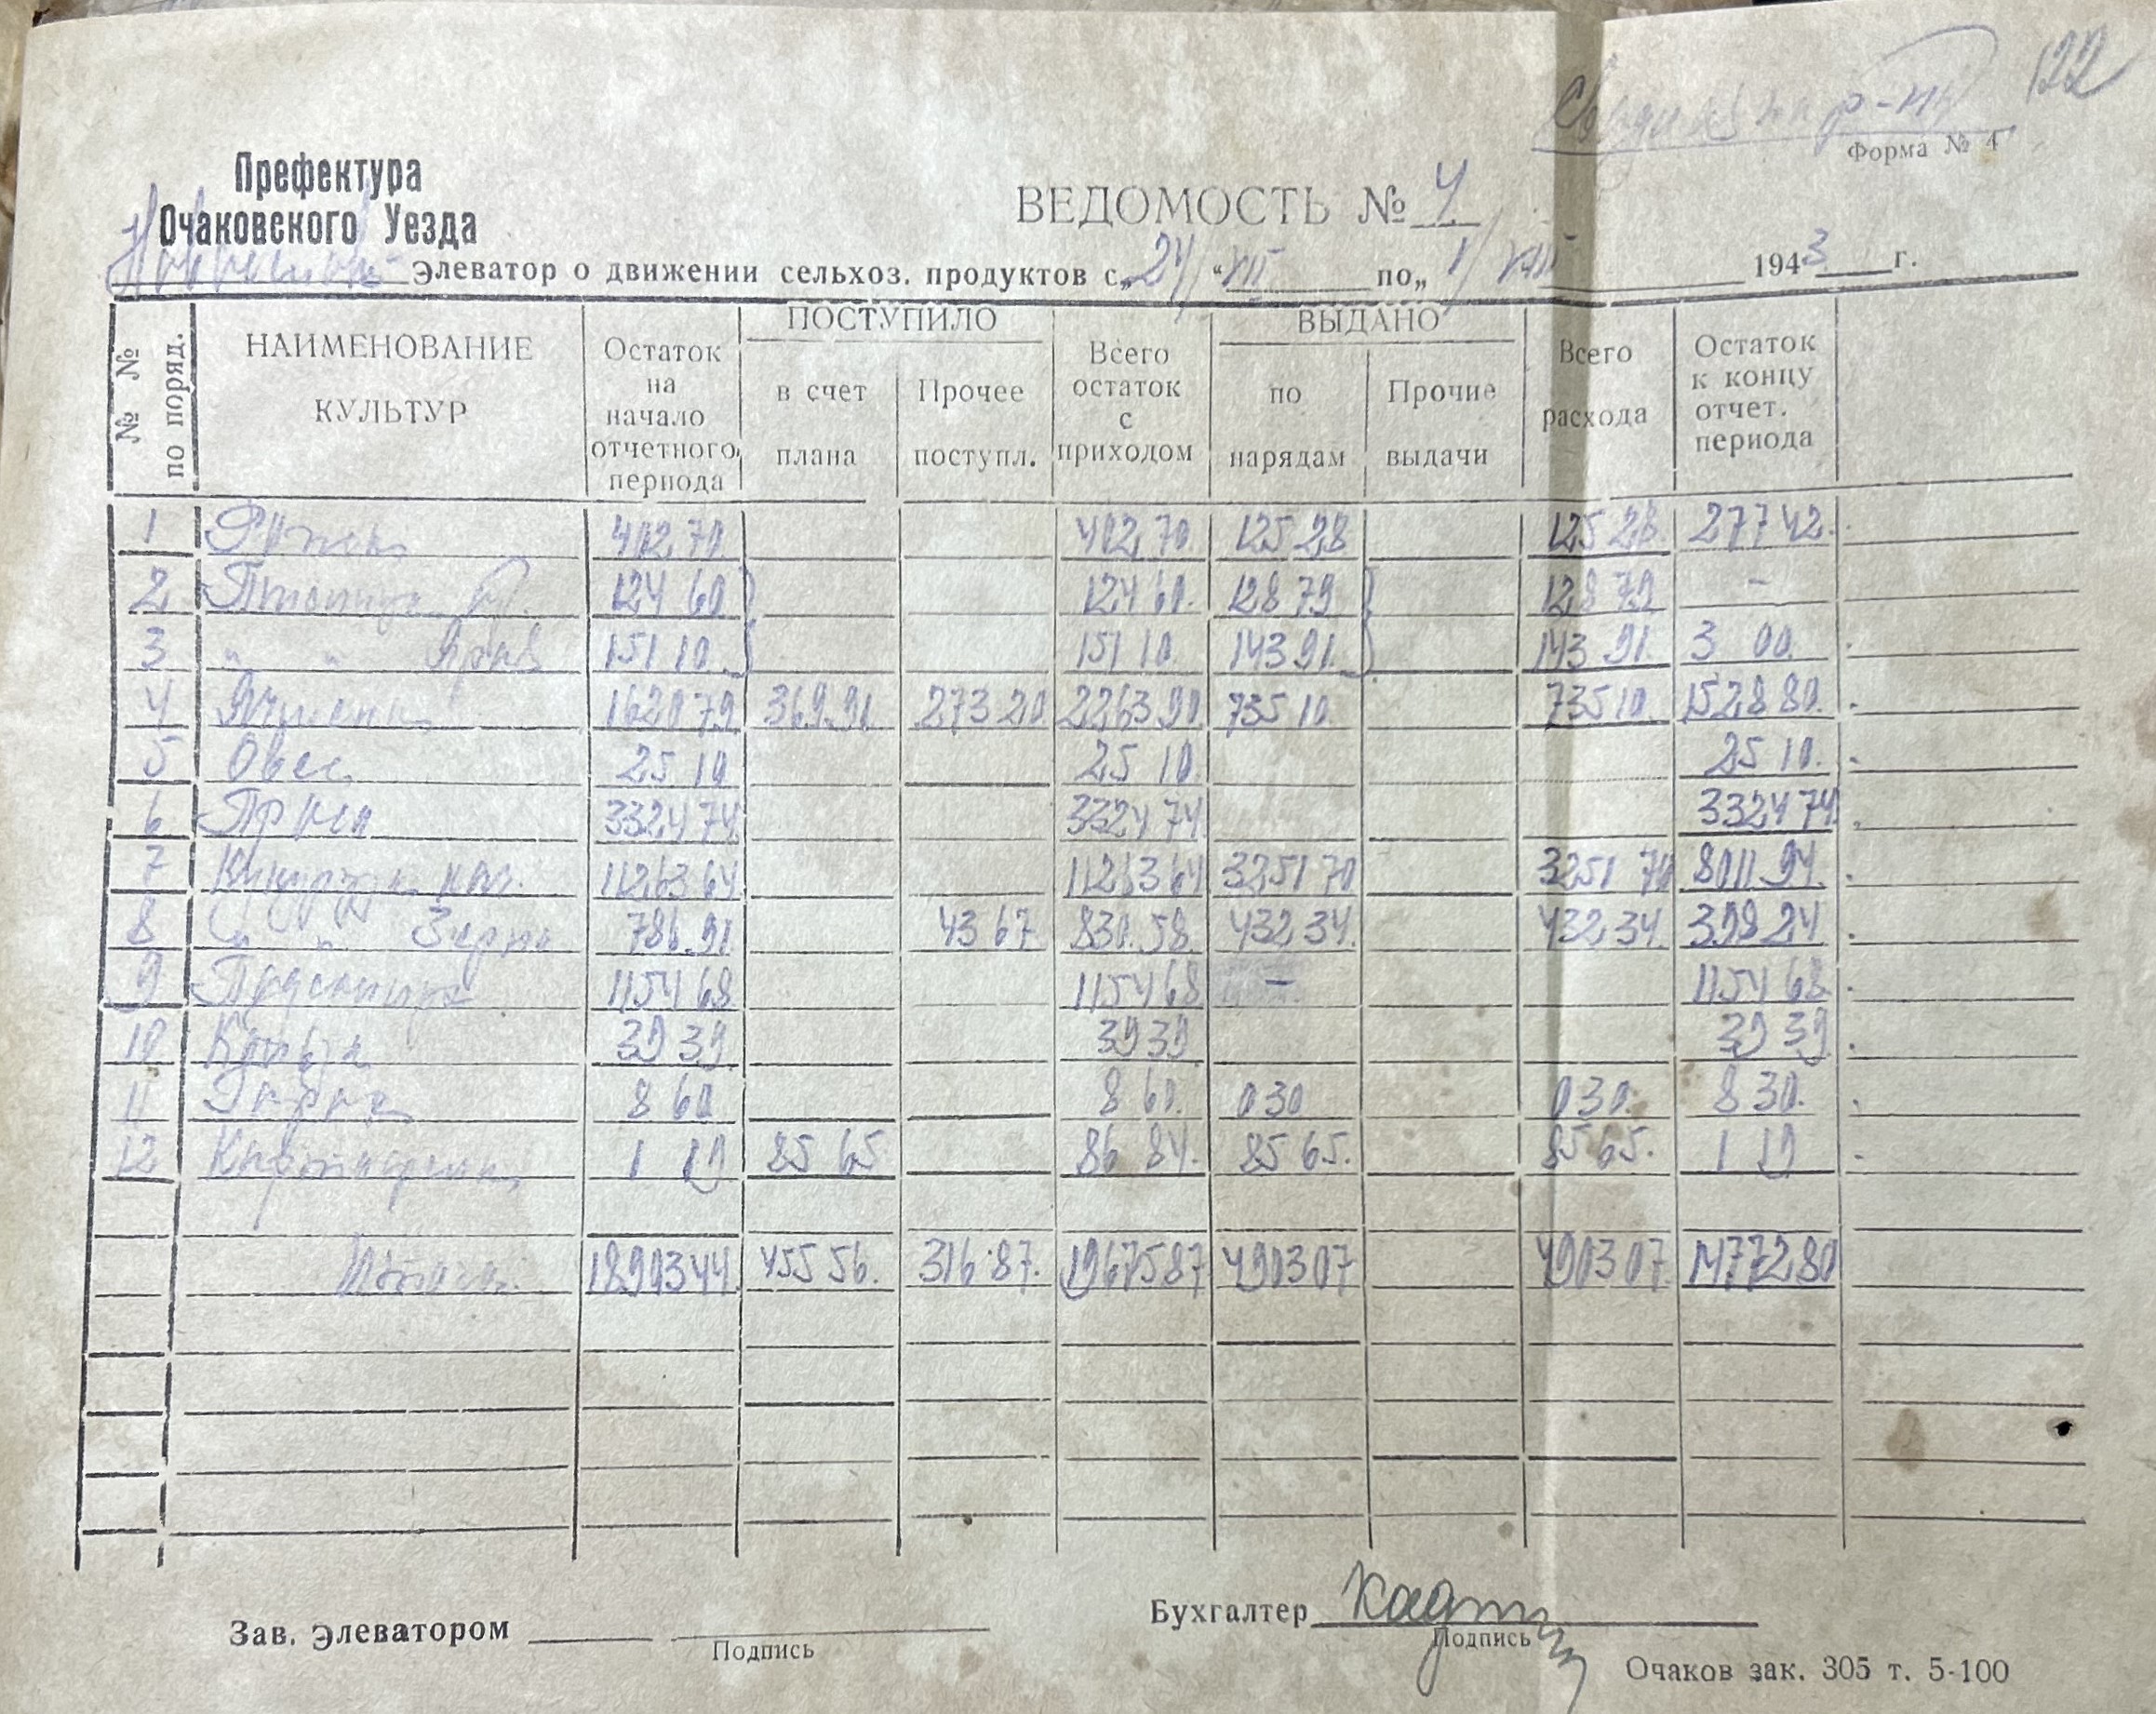 122
Сводная по р-ну
Форма № 4
Префектура
Очаковского Уезда
ВЕДОМОСТЬ № 4
Элеватор о движении сельхоз. продуктов с „24/ “ VII по „ 1/ VIII 1943 г.
№ № по поряд. НАИМЕНОВАНИЕ КУЛЬТУР Остаток на начало отчетного периода ПОСТУПИЛО в счет плана Прочее поступл. Всего остаток с приходом ВЫДАНО по нарядам Прочие выдачи Всего расхода Остаток к концу отчет. периода
1 Рожь 402 70 402 70 125 28 125 28 277 42
2 Пшеница оз. 124 60 124 60 128 79 128 79 -
3 " " Яров 151 10 151 10 143 91 143 91 3 00
4 Ячмень 1620 79 369 91 273 20 2263 90 735 10 735 10 1528 80
5 Овес 25 10 25 10 25 10
6 Просо 3324 74 3324 74 3324 74
7 Кукуруза кач. 11263 64 11263 64 3251 70 3251 70 8011 94
8 " " Зерно 786.91 43 67 830.58 432 34 432 34 398 24
9 1154 68 1154 68 - 1154 68
10 39 39 39 39 39 39
11 8 60 8 60 0 30 0 30 8 30
12 1 19 85 65 86 84 85 65 85 65 1 19
Итого: 18903 44 455 56 316 87 19675 87 4903 07 4903 07 14772 80
Зав. Элеватором
Подпись
Бухгалтер
Подпись
Очаков зак. 305 т. 5-100